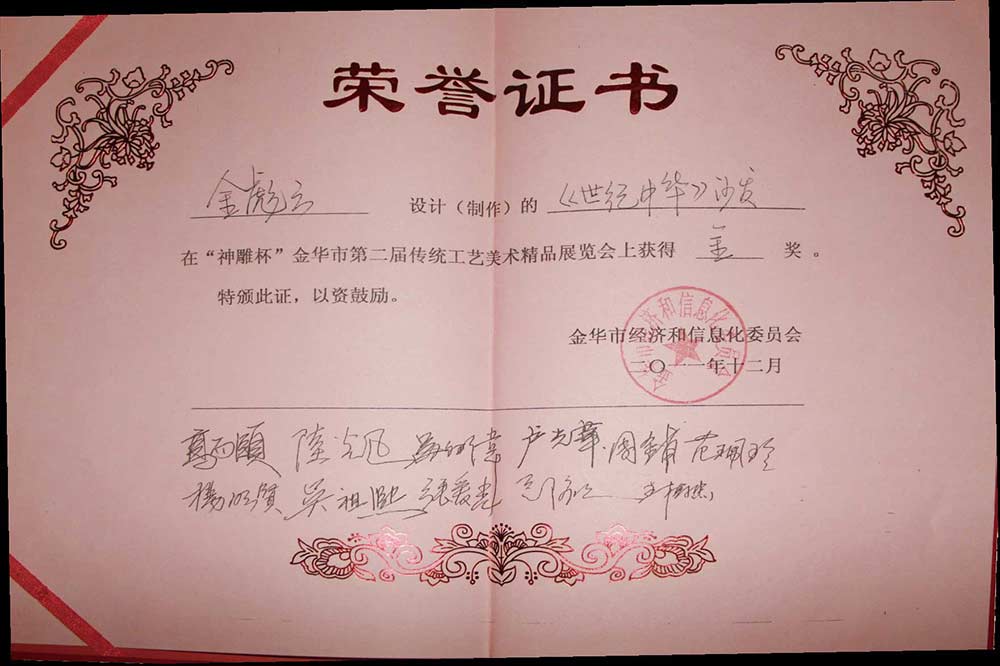 荣誉证书
金彪云 设计（制作）的 《世纪中华》沙发
在“神雕杯”金华市第二届传统工艺美术精品展览会上获得 金 奖。
特颁此证，以资鼓励。
金华市经济和信息化委员会
二〇一一年十二月
金华市经济和信息化委员会
吴祖熙